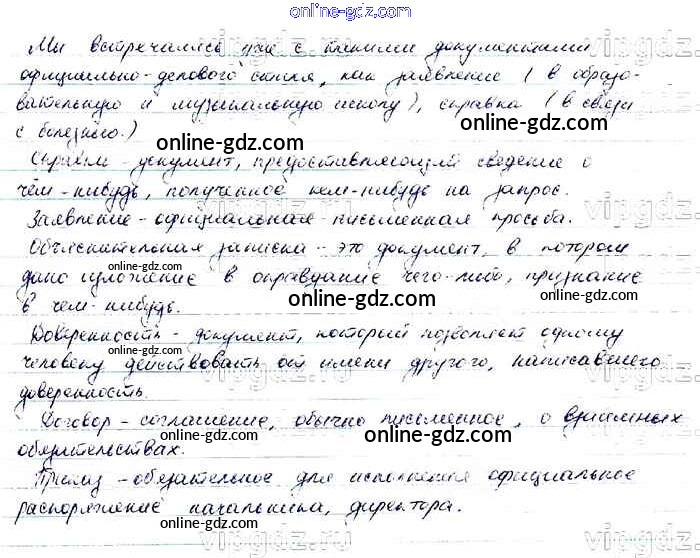 online-gdz.com
Мы встречались уже с такими документами
официально-делового стиля, как заявление (в образо-
вательную и музыкальную школу), справка (в связи
с болезнью.)
online-gdz.com
online-gdz.com
Справка - документ, предоставляющий сведение о
чём-нибудь, полученное кем-нибудь на запрос.
Заявление - официальная письменная просьба.
online-gdz.com
Объяснительная записка - это документ, в котором
дано изложение в оправдание чего-либо, признание
online-gdz.com
в чем-нибудь.
online-gdz.com
Доверенность - документ, который позволяет одному
online-gdz.com
человеку действовать от имени другого, написавшего
online-gdz.com
доверенность.
Договор - соглашение, обычно письменное, о взаимных
online-gdz.com
обязательствах.
online-gdz.com
Приказ - обязательное для исполнения официальное
распоряжение начальника, директора.
online-gdz.com
vipgdz.ru